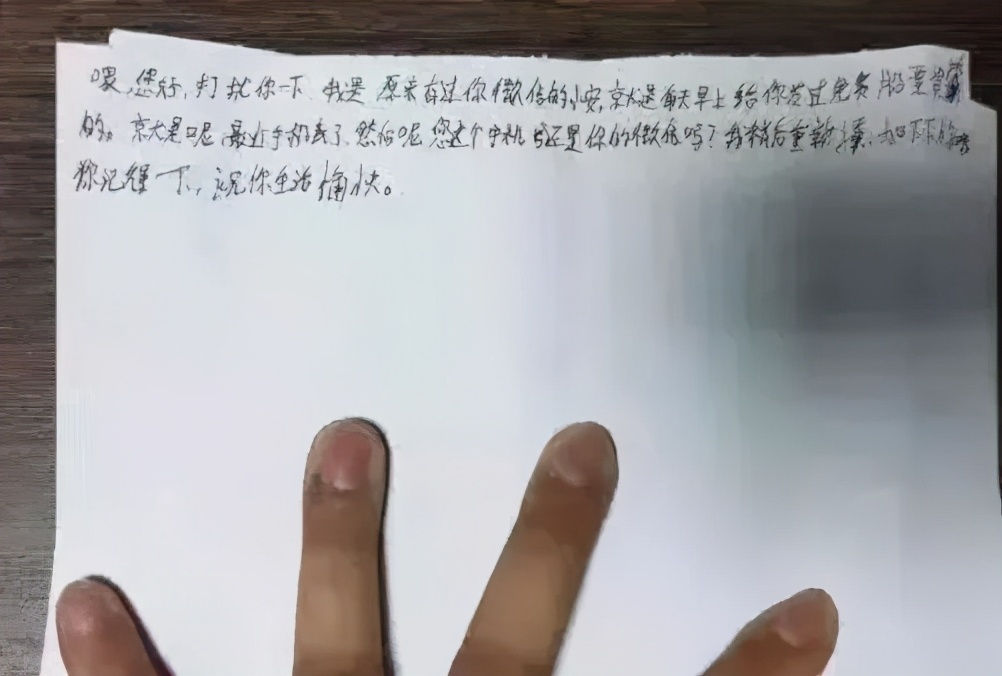 喂,您好,打扰你一下,我是原来有过你微信的小安,京大是每天早上给你发过免费股票
的。京大是呢,最近手机丢了,然后呢,您这个手机号还是你的微信吗?我稍后重新
你记得一下,祝你生活愉快。